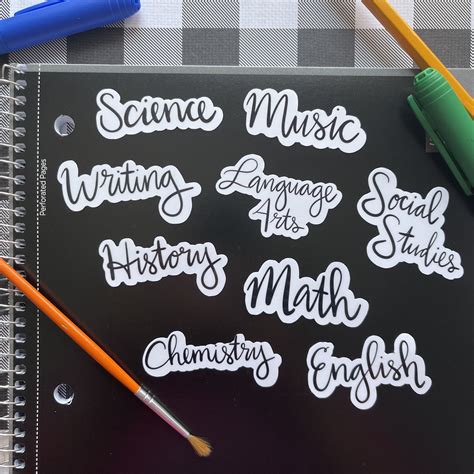 Perforated Pages
Science
Music
Writing
Language
Arts
Social
Studies
History
Math
Chemistry
English